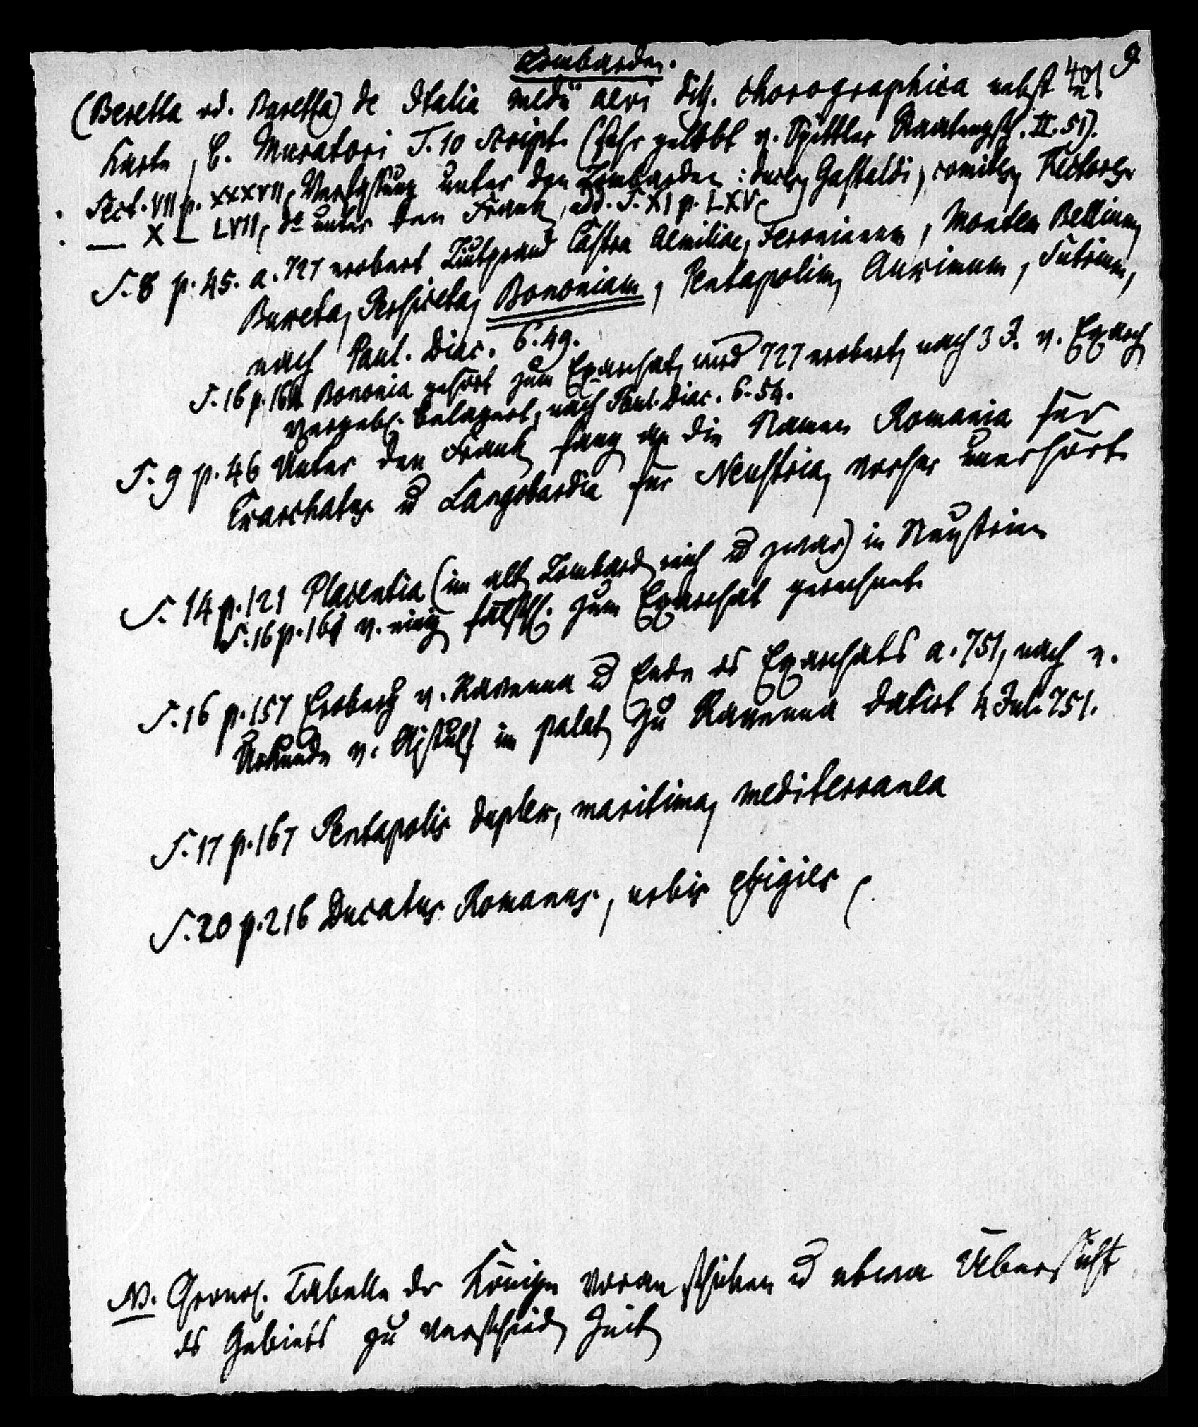 Lombarden. 9
(Beretta od. Baretta) de Italia medii aevi diss. chorographica nebst
Karte, b. Muratori T. 10 Script. (sehr gelobt v. Spittler Staatengsch. II. 51).
Sect. VII p. XXXVII, Verfassung unter den Lombarden: duces, Gastaldi, comites,
— X — LVII, do unter den Frank, add. S. XI p. LXV,
S. 8 p. 45. a. 727 erobert Liutprand Castra Aemiliae, Feronianum, Montem Bellium,
Buxeta, Persiceta, Bononiam, Pentapolim, Auximum, Sutrium,
nach Paul. Diac. 6. 49.
S. 16 p. 164 Bononia gehört zum Exarchat, wird 727 erobert, nach 3 J. v. Exarch
vergebl. belagert, nach Paul. Diac. 6. 54.
S. 9 p. 46 Unter den Frank fang an die Namen Romania für
Exarchatus u Langobardia für Neustria, vorher unerhört.
S. 14 p. 121 Placentia (im alt Lombard reich u zwar) in Neustrien
S. 16 p. 161 v. einig fälschl. zum Exarchat gerechnet.
S. 16 p. 157 Eroberg v. Ravenna u Ende ds Exarchats a. 751, nach e.
Urkunde v. Aistulf im palat zu Ravenna datirt 4 Jul. 751.
S. 17 p. 167 Pentapolis duplex, maritima, mediterranea
S. 20 p. 216 Ducatus Romanus, urbis effigies,
NB. Chronol. Tabelle der Könige voran schicken u etwa Übersicht
ds Gebiets zu verschied Zeit